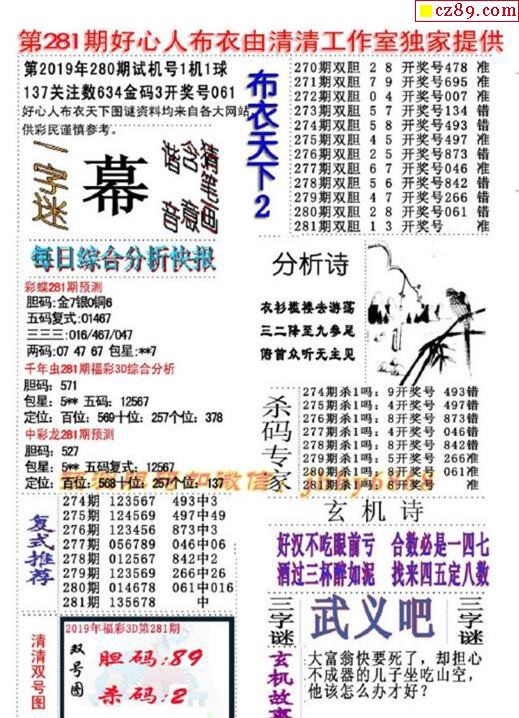 cz89.com
第281期好心人布衣由清清工作室独家提供
第2019年280期试机号1机1球
137关注数634金码3开奖号061
好心人布衣天下图谜资料均来自各大网站
供彩民谨慎参考。
一字谜
幕
猜笔画
含意
谐音
每日综合分析快报
彩蝶281期预测
胆码:金7银0铜6
五码复式:01467
三三三:016/467/047
两码:07 47 67 包星:**7
千年虫281期福彩3D综合分析
胆码:571
包星:5** 五码:12567
定位:百位:569十位:257个位:378
中彩龙281期预测
胆码:527
包星:5** 五码复式:12567
定位:百位:568十位:257个位:137
复式推荐
274期 123567 493中3
275期 124569 497中49
276期 123456 873中3
277期 056789 046中06
278期 012567 842中2
279期 123569 266中26
280期 014678 061中016
281期 135678 中
清清双号图
2019年福彩3D第281期
双号图
胆码:89
杀码:2
布衣天下2
270期双胆 2 8 开奖号478 准
271期双胆 7 9 开奖号695 准
272期双胆 0 4 开奖号007 准
273期双胆 5 7 开奖号134 错
274期双胆 5 8 开奖号493 错
275期双胆 4 5 开奖号497 准
276期双胆 2 5 开奖号873 错
277期双胆 6 7 开奖号046 准
278期双胆 5 6 开奖号842 错
279期双胆 4 7 开奖号266 错
280期双胆 2 8 开奖号061 错
281期双胆 1 3 开奖号 准
分析诗
衣衫褴褛去游荡
三二降至九参足
俯首众听天主见
杀码专家
274期杀1吗:9开奖号 493错
275期杀1吗:4开奖号 497错
276期杀1吗:8开奖号 873错
277期杀1吗:4开奖号 046错
278期杀1吗:8开奖号 842错
279期杀1吗:5开奖号 266准
280期杀1吗:8开奖号 061准
281期杀1吗:8开奖号 准
玄机诗
好汉不吃眼前亏 合数必是一四七
酒过三杯醉如泥 找来四五定八数
三字谜
武义吧
三字谜
玄机故事
大富翁快要死了,却担心
不成器的儿子坐吃山空,
他该怎么办才好?